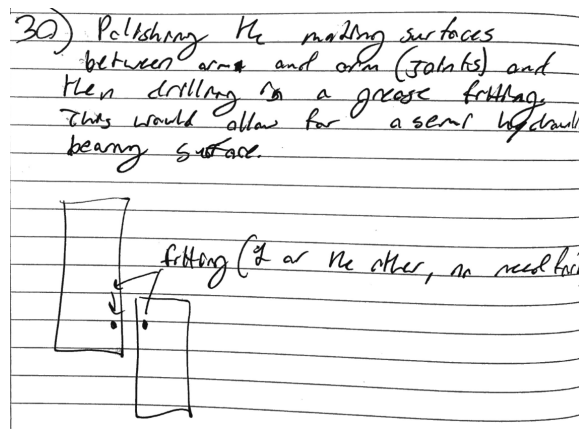 30) Polishing the mating surfaces
between arm and arm (joints) and
then drilling in a grease fitting.
This would allow for a semi hydraul
bearing surface.
fitting (1 or the other, no need for